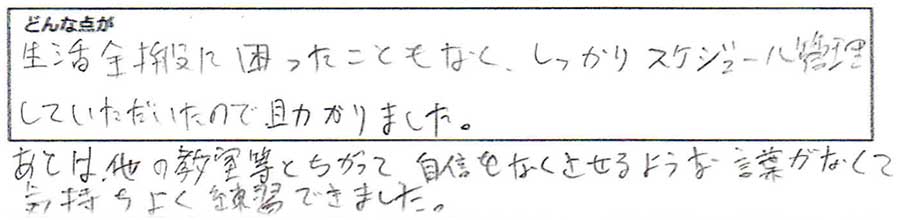 どんな点が
生活全般に困ったこともなく、しっかりスケジュール管理
していただいたので助かりました。
あとは、他の教室等とちがって 自信をなくさせるような言葉がなくて
気持ちよく練習できました。